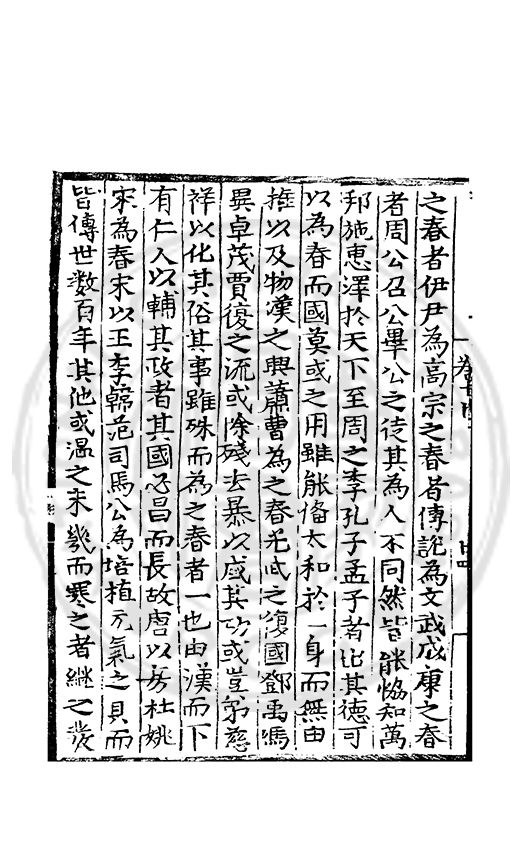 之春者伊尹為高宗之春者傅說為文武成康之春
者周公召公畢公之徒其為人不同然皆能恊和萬
邦施惠澤於天下至周之季孔子孟子者出其德可
以為春而國莫或之用雖能備太和於一身而無由
推以及物漢之興蕭曹為之春光武之復國鄧禹馮
異卓茂賈復之流或除殘去暴以成其功或豈弟慈
祥以化其俗其事雖殊而為之春者一也由漢而下
有仁人以輔其政者其國必昌而長故唐以房杜姚
宋為春宋以王李韓范司馬公為培植元氣之具而
皆傳世数百年其他或温之未幾而寒之者繼之發